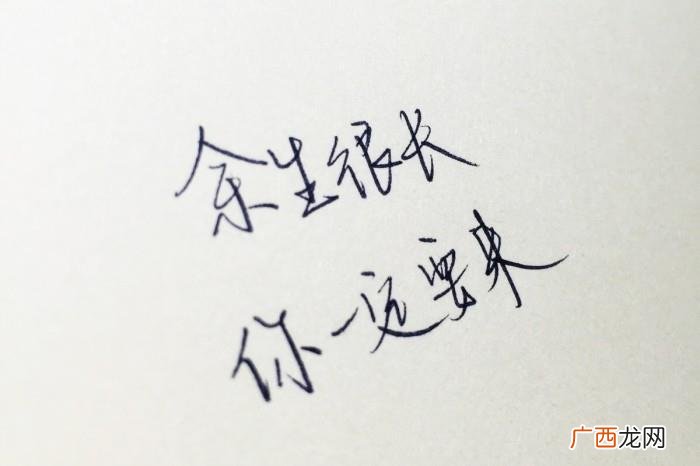 余生很长
你一定要来
广西龙网